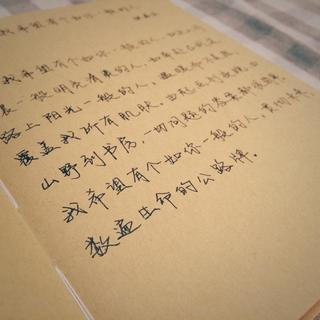 我希望有个如你一般的人
我希望有个如你一般的人。如这山间清
晨一般明亮清爽的人,如奔赴古城道
路上阳光一般的人,温暖而不炙热,
覆盖我所有肌肤。由起点到夜晚,由
山野到书房,一切问题的答案都很简单。
我希望有个如你一般的人,贯彻未来,
数遍生命的公路牌。